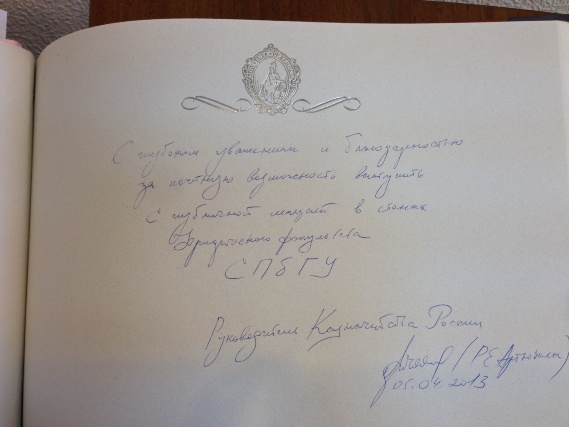 С глубоким уважением и благодарностью
за почетную возможность выступить
с публичной лекцией в стенах
Юридического факультета
СПбГУ
Руководитель Казначейства России
(Р.Е. Артюхин)
05.04.2013